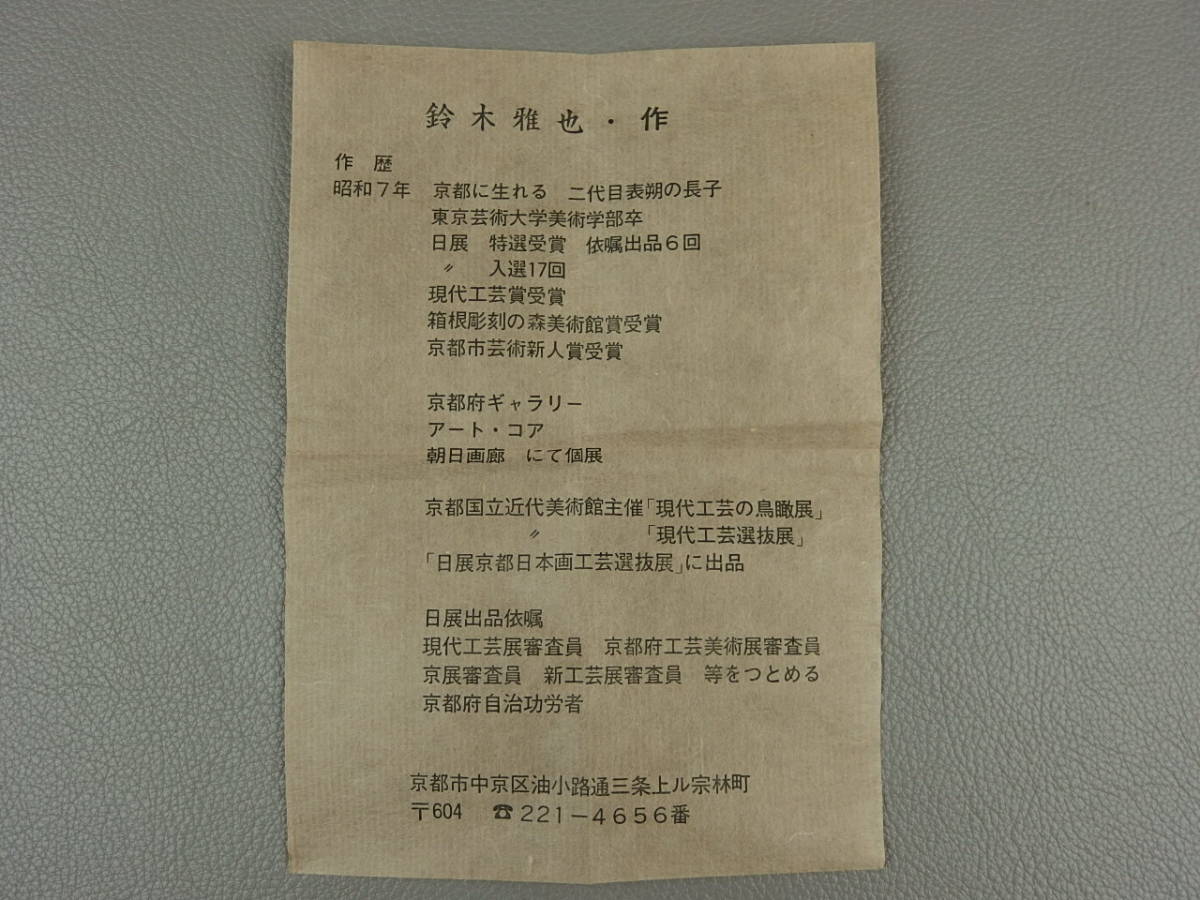 鈴木雅也・作
作歴
昭和7年 京都に生れる 二代目表朔の長子
東京芸術大学美術学部卒
日展 特選受賞 依嘱出品6回
〃 入選17回
現代工芸賞受賞
箱根彫刻の森美術館賞受賞
京都市芸術新人賞受賞
京都府ギャラリー
アート・コア
朝日画廊 にて個展
京都国立近代美術館主催「現代工芸の鳥瞰展」
〃 「現代工芸選抜展」
「日展京都日本画工芸選抜展」に出品
日展出品依嘱
現代工芸展審査員 京都府工芸美術展審査員
京展審査員 新工芸展審査員 等をつとめる
京都府自治功労者
京都市中京区油小路通三条上ル宗林町
〒604 ☎221-4656番